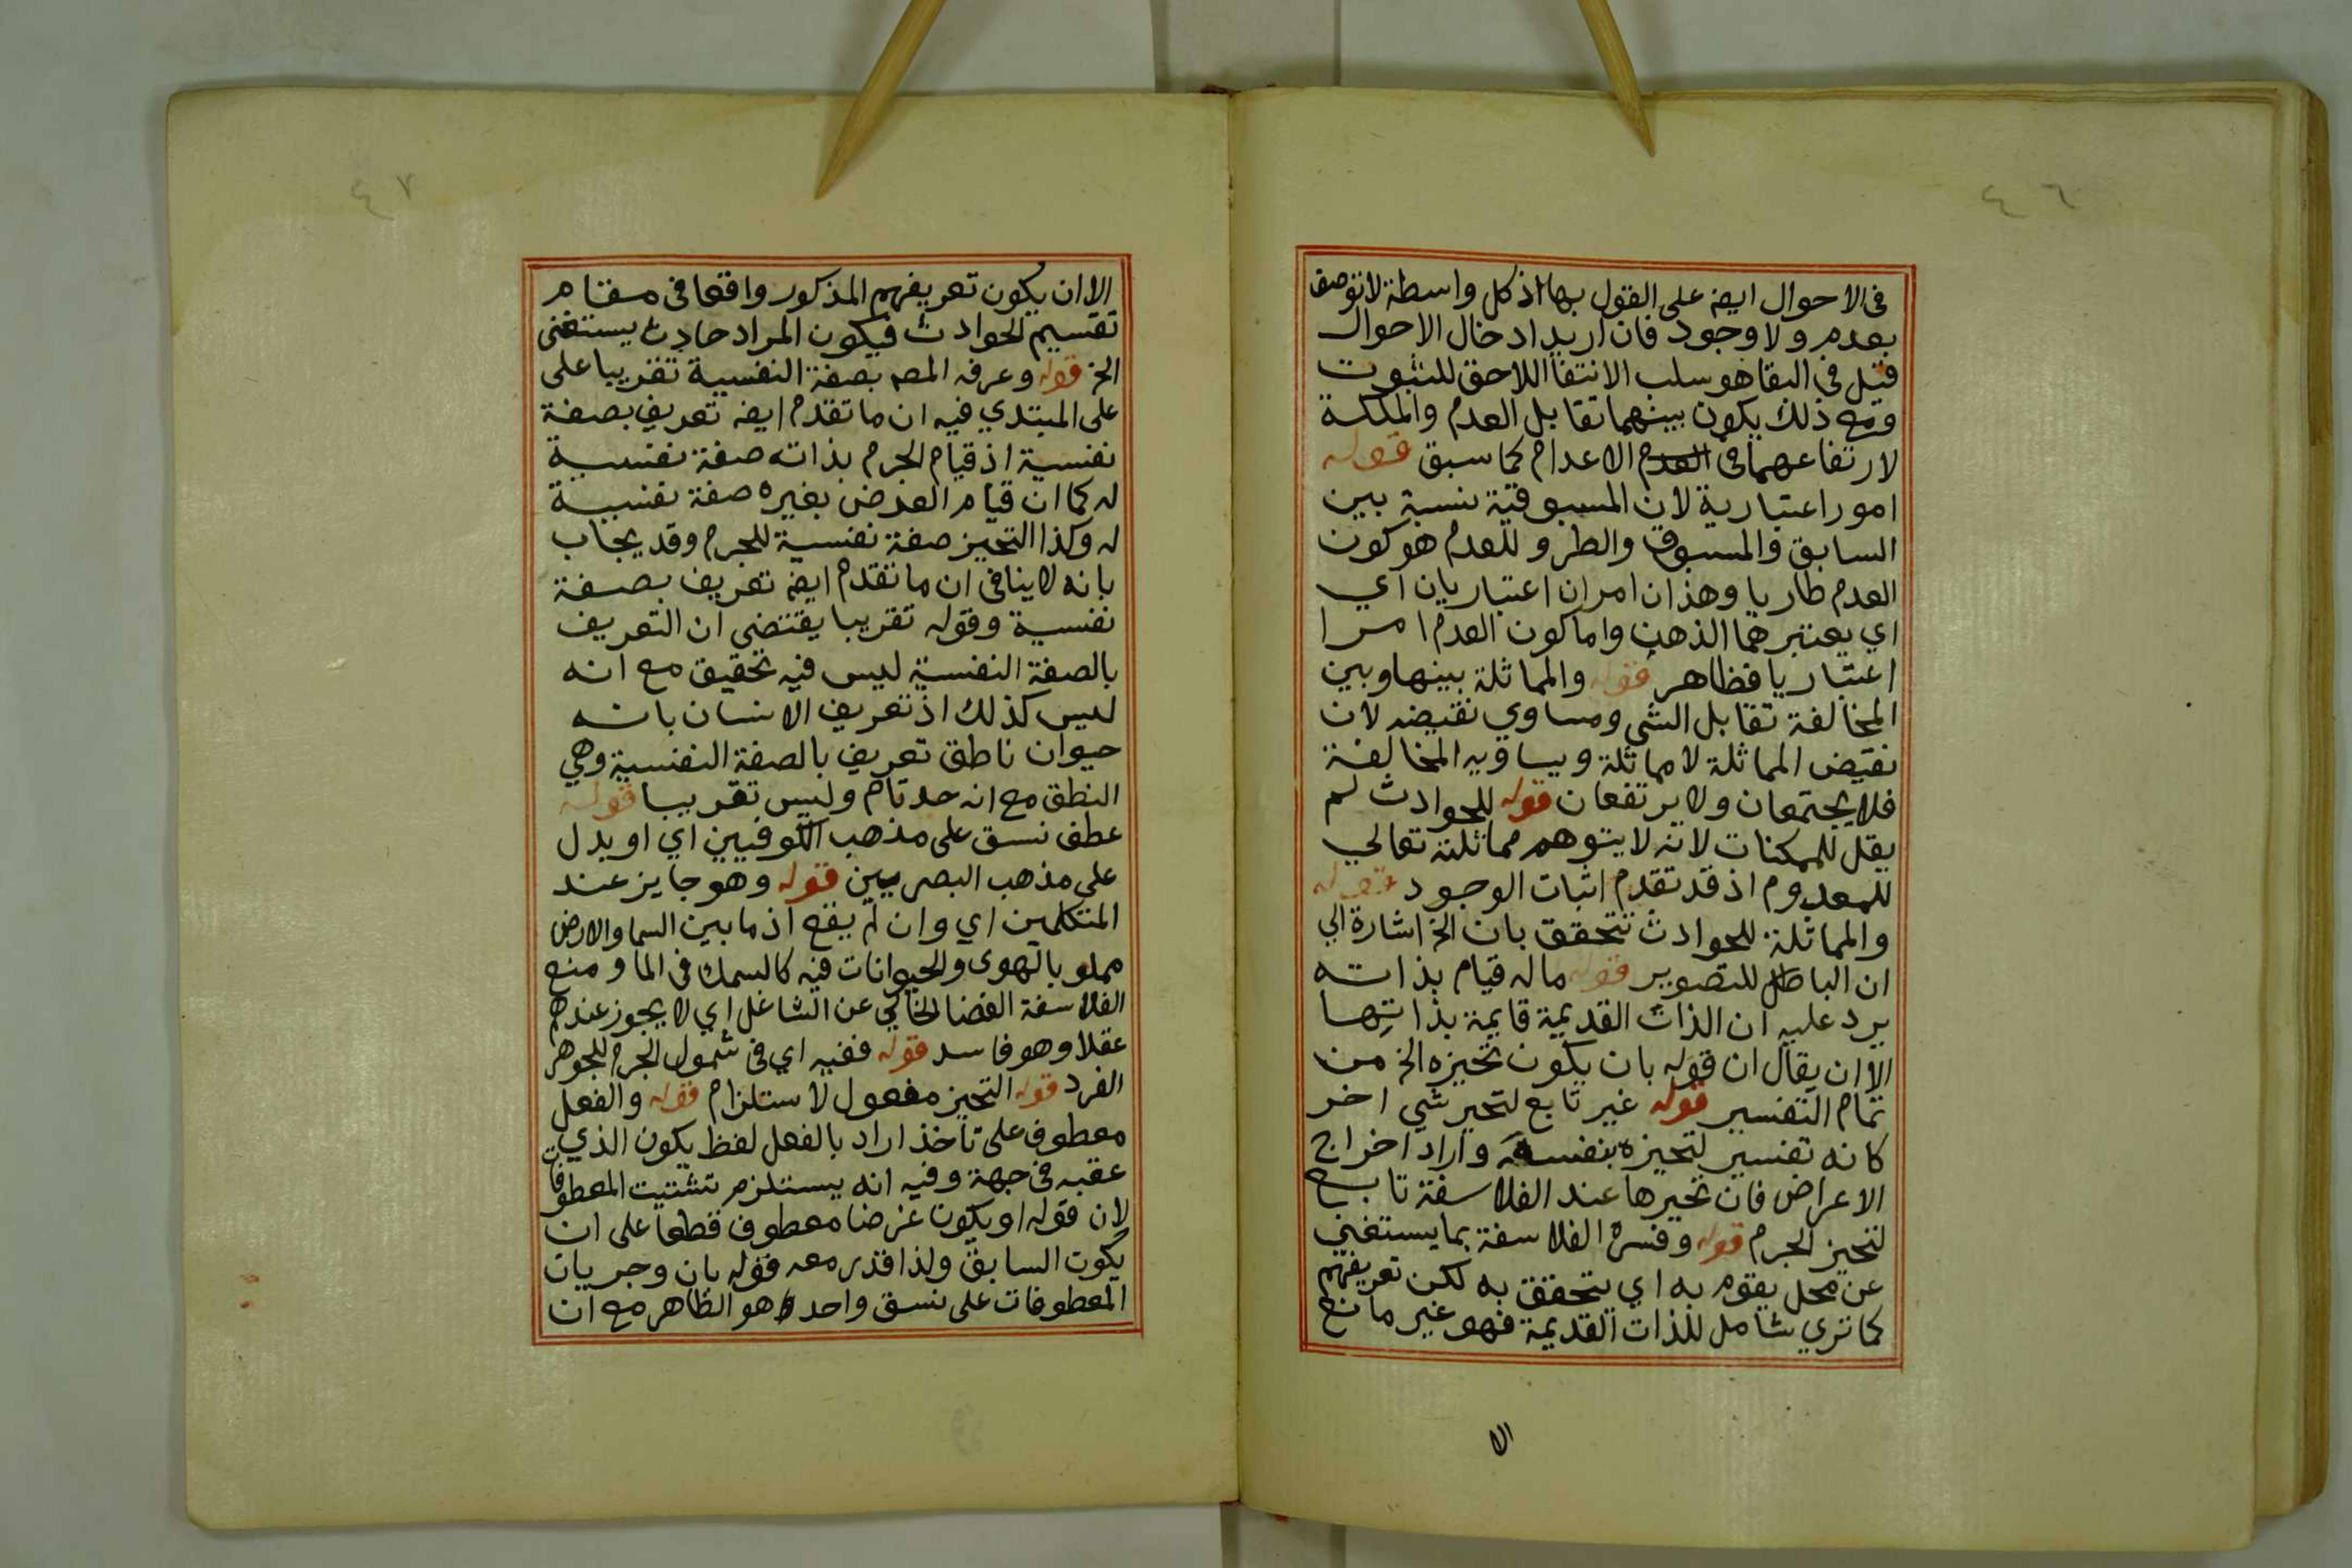 ٤٦
في الاحوال ايضه على القول بها اذ كل واسطة لا توصف
بعدم ولا وجود فان اريد ادخال الاحوال
قيل في البقا هو سلب الانتفا اللاحق للثبوت
ومع ذلك يكون بينهما تقابل العدم والملكة
لارتفاعهما في العدم الاعدام كما سبق قوله
امور اعتبارية لان المسبوقية نسبة بين
السابق والمسبوق والطرو للعدم هو كون
العدم طاريا وهذان امران اعتباريان اي
اي يعتبرهما الذهن واما كون العدم امرا
اعتباريا فظاهر قوله والمماثلة بينها وبين
المخالفة تقابل الشي ومساوي نقيضه لان
نقيض المماثلة لا مماثلة ويساويه المخالفة
فلا يجتمعان ولا يرتفعان قوله للحوادث لم
يقل للممكنات لانه لا يتوهم مماثلته تعالي
للمعدوم اذ قد تقدم اثبات الوجود قوله
والمماثلة للحوادث تتحقق بان الخ اشارة الي
ان الباطل للتصوير قوله ماله قيام بذاته
يرد عليه ان الذات القديمة قايمة بذاتها
الا ان يقال ان قوله بان يكون تحيزه الخ من
تمام التفسير قوله غير تابع لتحيز شي اخر
كانه تفسير لتحيزه بنفسه واراد اخراج
الاعراض فان تحيزها عند الفلاسفة تابع
لتحيز الجرم قوله وفسره الفلاسفة بما يستغني
عن محل يقوم به اي يتحقق به لكن تعريفهم
كما تري شامل للذات القديمة فهو غير مانع
الا
٤٧
الا ان يكون تعريفهم المذكور واقعا في مقام
تقسيم الحوادث فيكون المراد حادث يستغني
الخ قوله وعرفه المصه بصفة النفسية تقريبا على
على المبتدي فيه ان ما تقدم ايضه تعريف بصفة
نفسية اذ قيام الجرم بذاته صفة نفسية
له كما ان قيام العرض بغيره صفة نفسية
له وكذا التحيز صفة نفسية للجرم وقد يجاب
بانه لا ينافي ان ما تقدم ايضه تعريف بصفة
نفسية وقوله تقريبا يقتضي ان التعريف
بالصفة النفسية ليس فيه تحقيق مع انه
ليس كذلك اذ تعريف الانسان بانه
حيوان ناطق تعريف بالصفة النفسية وهي
النطق مع انه حد تام وليس تقريبا قوله
عطف نسق على مذهب الكوفيين اي او بدل
على مذهب البصريين قوله وهو جايز عند
المتكلمين اي وان لم يقع اذ ما بين السما والارض
مملو بالهوى والحيوانات فيه كالسمك في الما ومنع
الفلاسفة الفضا الخالي عن الشاغل اي لا يجوز عندهم
عقلا وهو فاسد قوله ففيه اي في شمول الجرم للجوهر
الفرد قوله التحيز مفعول لاستلزام قوله والفعل
معطوف على تاخذ اراد بالفعل لفظ يكون الذي
عقبه في جهة وفيه انه يستلزم تشتيت المعطوفات
لان قوله او يكون عرضا معطوف قطعا على ان
يكون السابق ولذا قدر معه قوله بان وجريان
المعطوفات على نسق واحد هو الظاهر مع ان